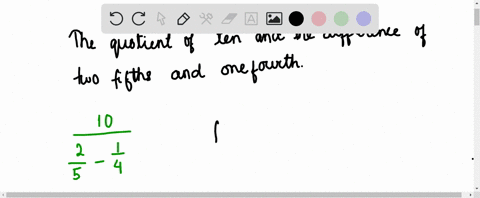 The quotient of ten and the difference of
two fifths and one fourth.
10
2/5 - 1/4